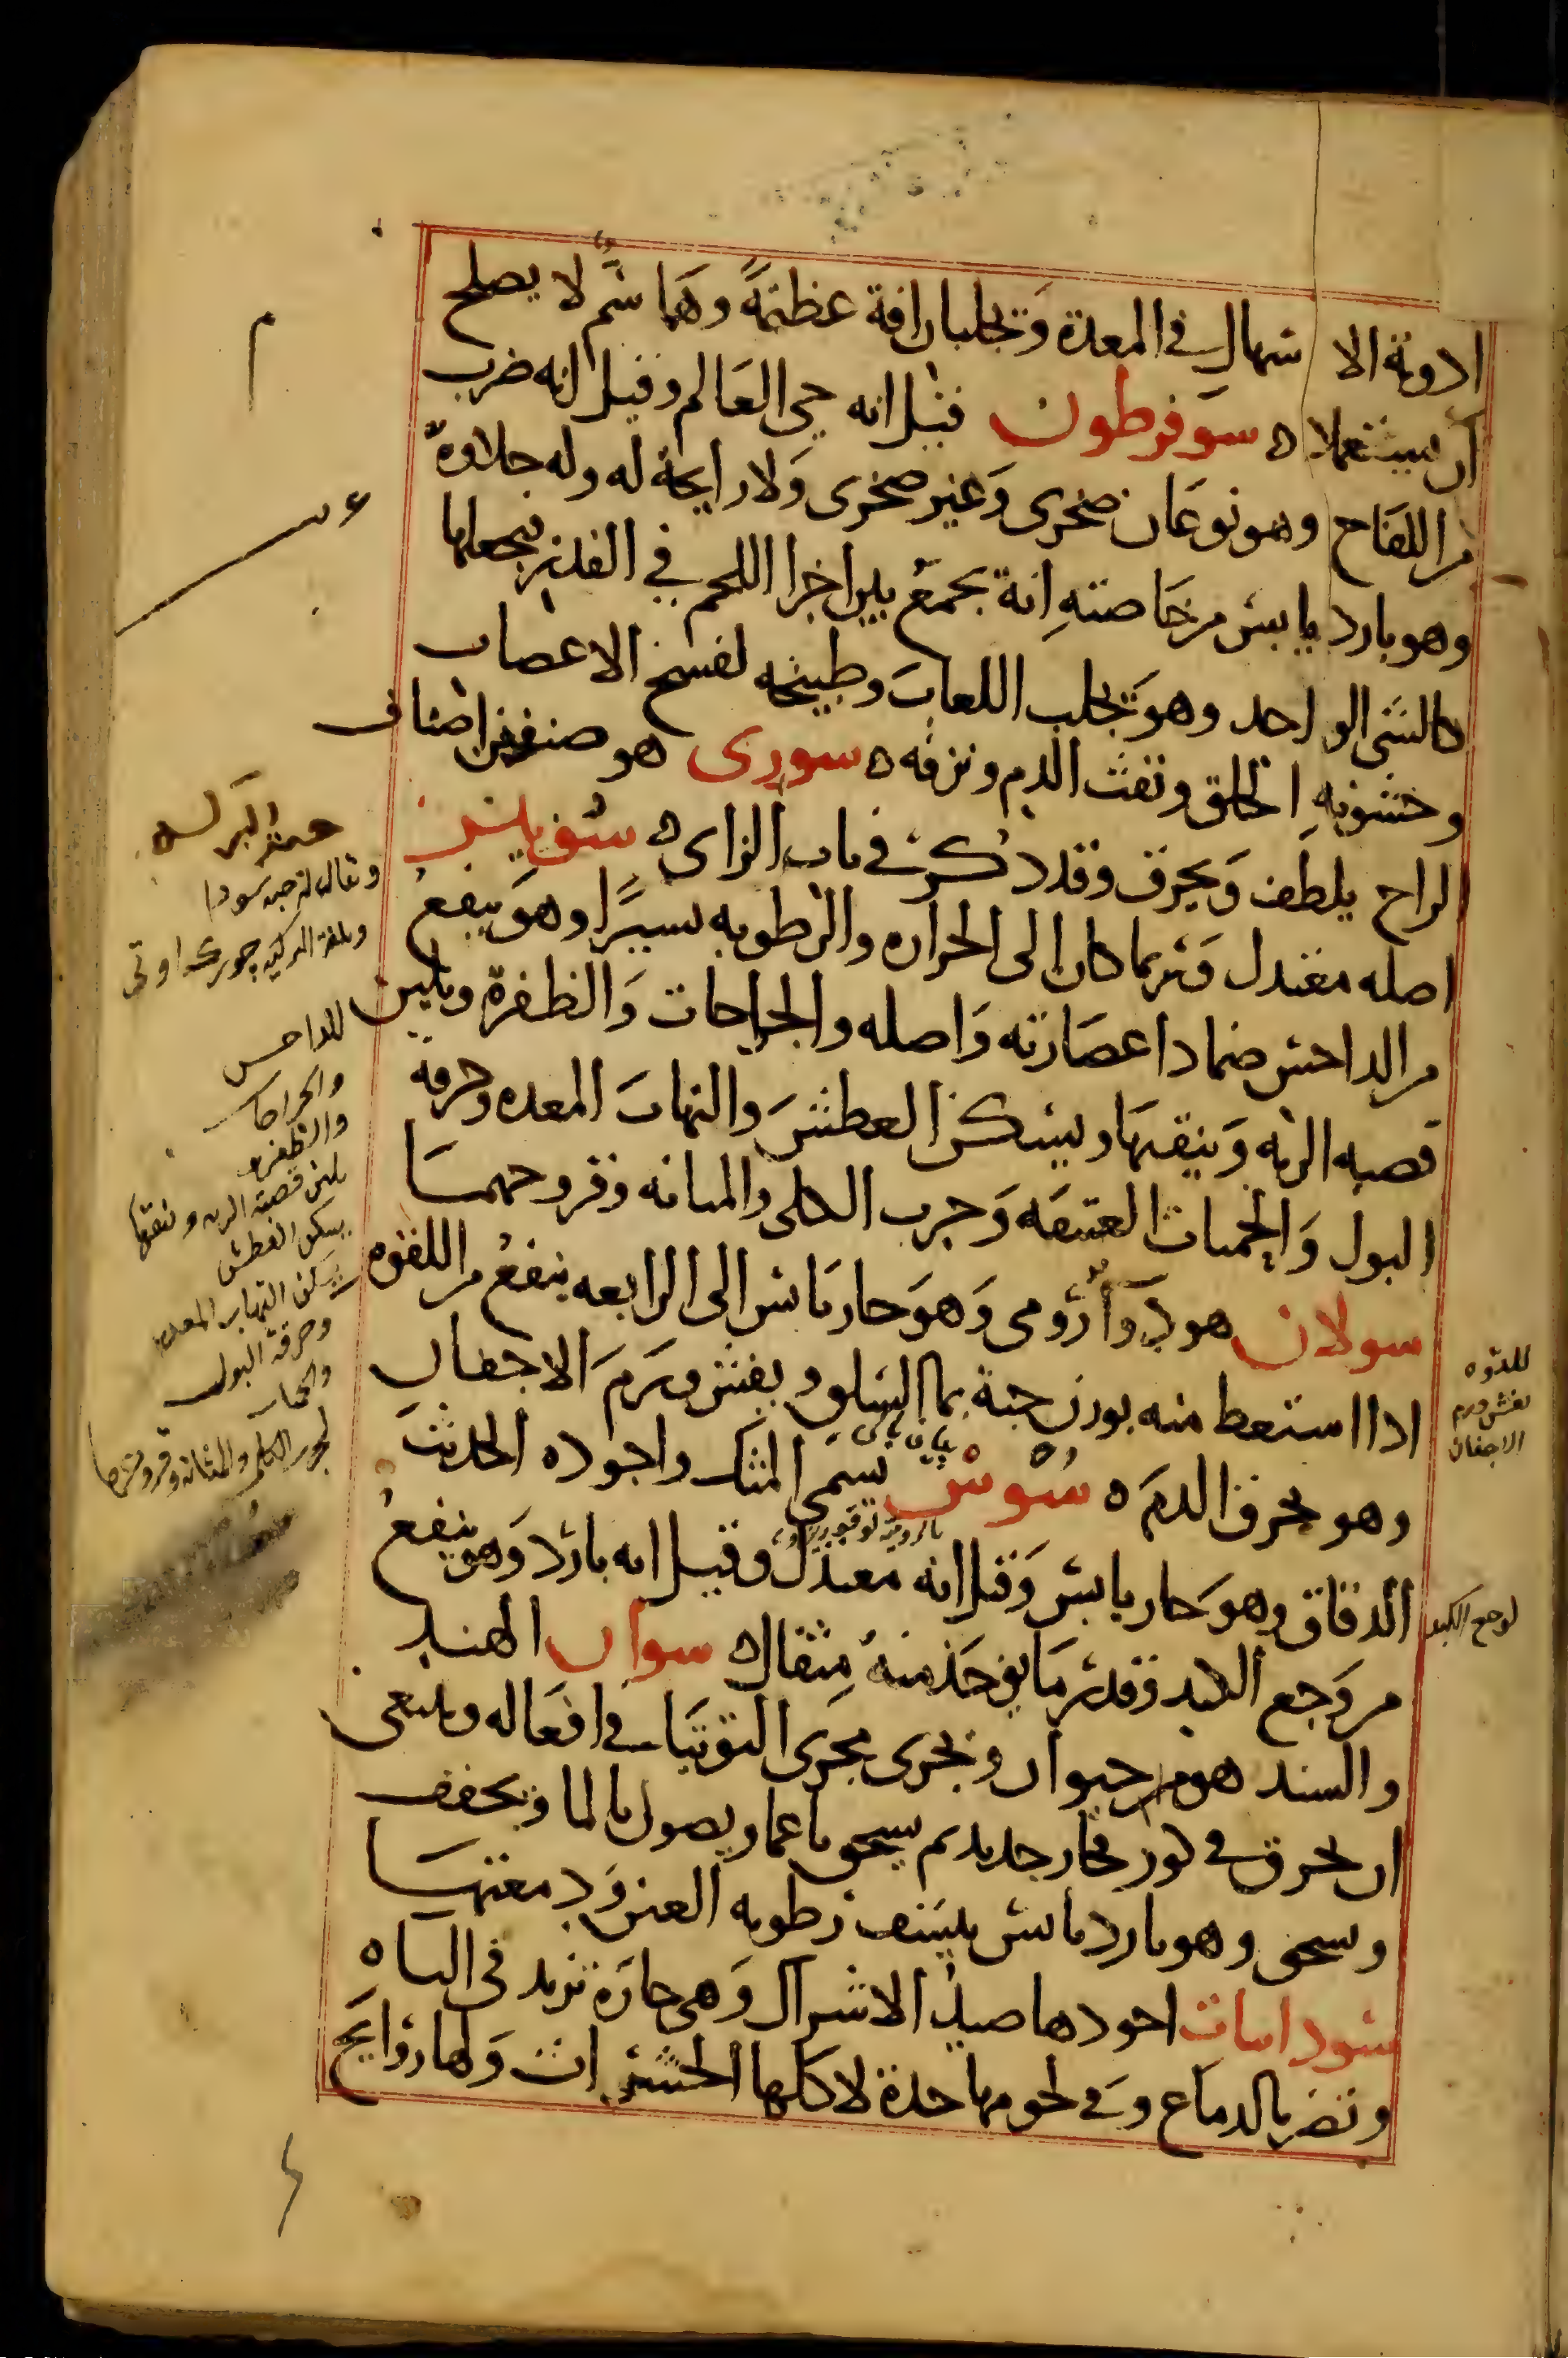 ادوية الاسهال في المعدة وتجلبان افة عظيمة وهما سم لا يصلح
ان يستعملا ه سوفرطون قيل انه حي العالم وقيل انه ضرب
من اللفاح وهو نوعان صخرى وغير صخرى ولا رايحة له وله حلاوة
وهو بارد يابس من خاصته انه يجمع بين اجزا اللحم في القدر فيجعلها
كالشي الواحد وهو يجلب اللعاب وطبيخه لفسخ الاعصاب
وخشونة الحلق ونفث الدم ونزفه ه سورى هو صنف من اصناف
الزاج يلطف ويحرق وقد ذكر في باب الزاى ه سوس
اصله معتدل وربما كان الى الحراره والرطوبه يسيرا وهو ينفع
من الداحس ضمادا عصارته واصله والجراحات والظفرة ويلين
قصبه الريه وينقيها ويسكن العطش والتهاب المعده وحرقة
البول والحميات العتيقه وجرب الكلى والمثانه وقروحهما
سولان هو دوآ رومى وهو حار يابس الى الرابعه ينفع من اللقوه
اذا استعط منه بوزن حبة بما السلق ويفش ورم الاجفان
وهو يحرق الدم ه سورنجـ يسمى المثك واجوده الحديث
الدقاق وهو حار يابس وقيل انه معتدل وقيل انه بارد وهو ينفع
من وجع الكبد وقدر ما يوخذ منه مثقال ه سوار الهند
والسند هو من حيوان ويجرى مجرى التوتيا في افعاله وينبغى
ان يحرق في كوز فخار جديد ثم يسحق ناعما ويصول بالما ويجفف
ويسحق وهو بارد يابس ينشف رطوبه العين ودمعتها
سودانيات اجودها صيد الاشراك وهى حارة تزيد في الباه
وتضر بالدماغ وفي لحومها حدة لاكلها الحشرات ولها روايح
للداحس
والجراحات
والظفره
يلين قصبة الريه وينقيها
يسكن العطش
يسكن التهاب المعده
وحرقة البول
للقوه
يفش ورم
الاجفان
لوجع الكبد